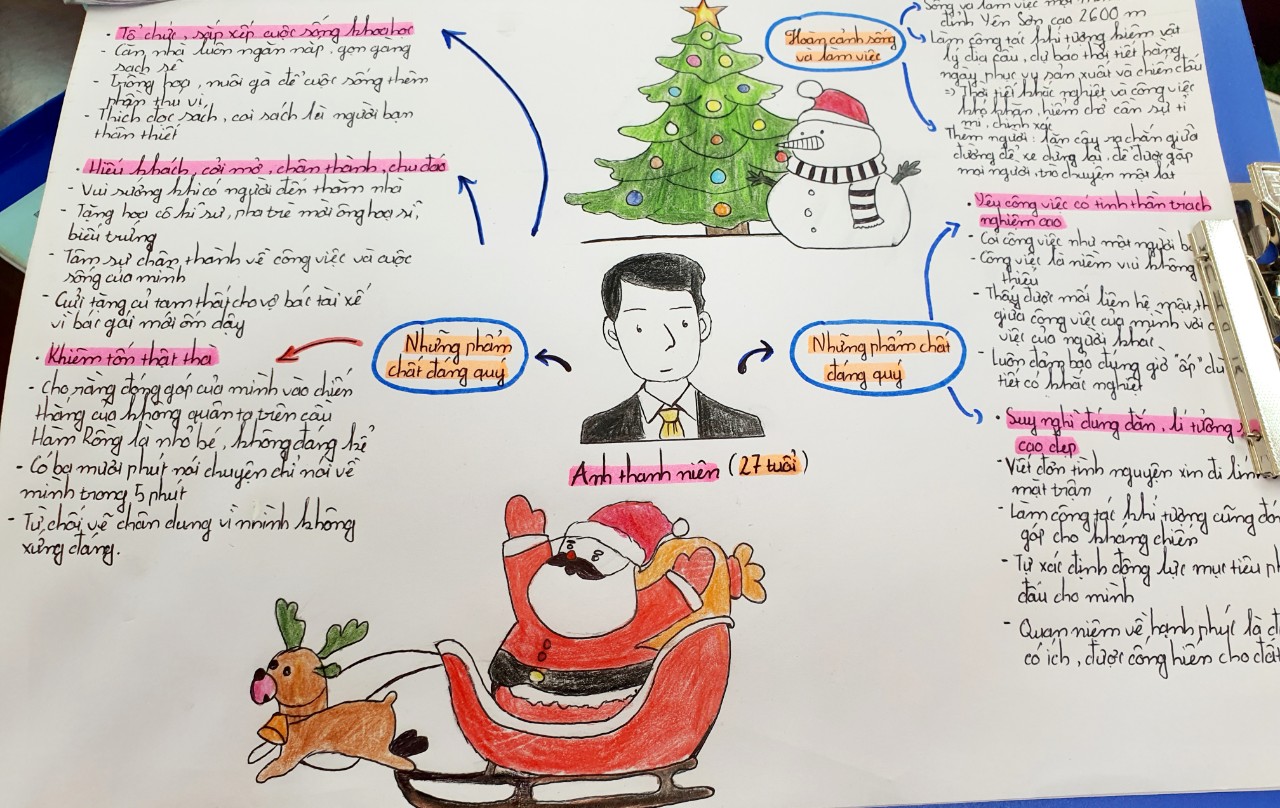 • Tổ chức, sắp xếp cuộc sống khoa học
- Căn nhà luôn ngăn nắp, gọn gàng
sạch sẽ
- Trồng hoa, nuôi gà để cuộc sống thêm
phần thú vị
- Thích đọc sách, coi sách là người bạn
thân thiết
• Hiếu khách, cởi mở, chân thành, chu đáo
- Vui sướng khi có người đến thăm nhà
- Tặng hoa cô kĩ sư, pha trà mời ông họa sĩ,
biếu trứng
- Tâm sự chân thành về công việc và cuộc
sống của mình
- Gửi tặng củ tam thất cho vợ bác tài xế
vì bác gái mới ốm dậy
• Khiêm tốn thật thà
- Cho rằng đóng góp của mình vào chiến
thắng của không quân ta trên cầu
Hàm Rồng là nhỏ bé, không đáng kể
- Có ba mươi phút nói chuyện chỉ nói về
mình trong 5 phút
- Từ chối vẽ chân dung vì mình không
xứng đáng.
Những phẩm
chất đáng quý
Anh thanh niên (27 tuổi)
Những phẩm chất
đáng quý
Hoàn cảnh sống
và làm việc
Sống và làm việc một
đỉnh Yên Sơn cao 2600 m
Làm công tác khí tượng kiêm vật
lý địa cầu, dự báo thời tiết hàng
ngày phục vụ sản xuất và chiến đấu
=> Thời tiết khắc nghiệt và công việc
khó khăn, hiểm trở cần sự tỉ
mỉ, chính xác
Thèm người: lăn cây ra chắn giữa
đường để xe dừng lại, để được gặp
mọi người, trò chuyện một lát
• Yêu công việc có tinh thần trách
nghiệm cao
- Coi công việc như một người
- Công việc là niềm vui không
thiếu
- Thấy được mối liên hệ mật
giữa công việc của mình với
việc của người khác
- Luôn đảm bảo đúng giờ "ốp"
tiết có khắc nghiệt
• Suy nghĩ đúng đắn, lí tưởng
cao đẹp
- Viết đơn tình nguyện xin đi lính
mặt trận
- Làm công tác khí tượng cũng
góp cho kháng chiến
- Tự xác định động lực mục tiêu
đấu cho mình
- Quan niệm về hạnh phúc là
có ích, được cống hiến cho